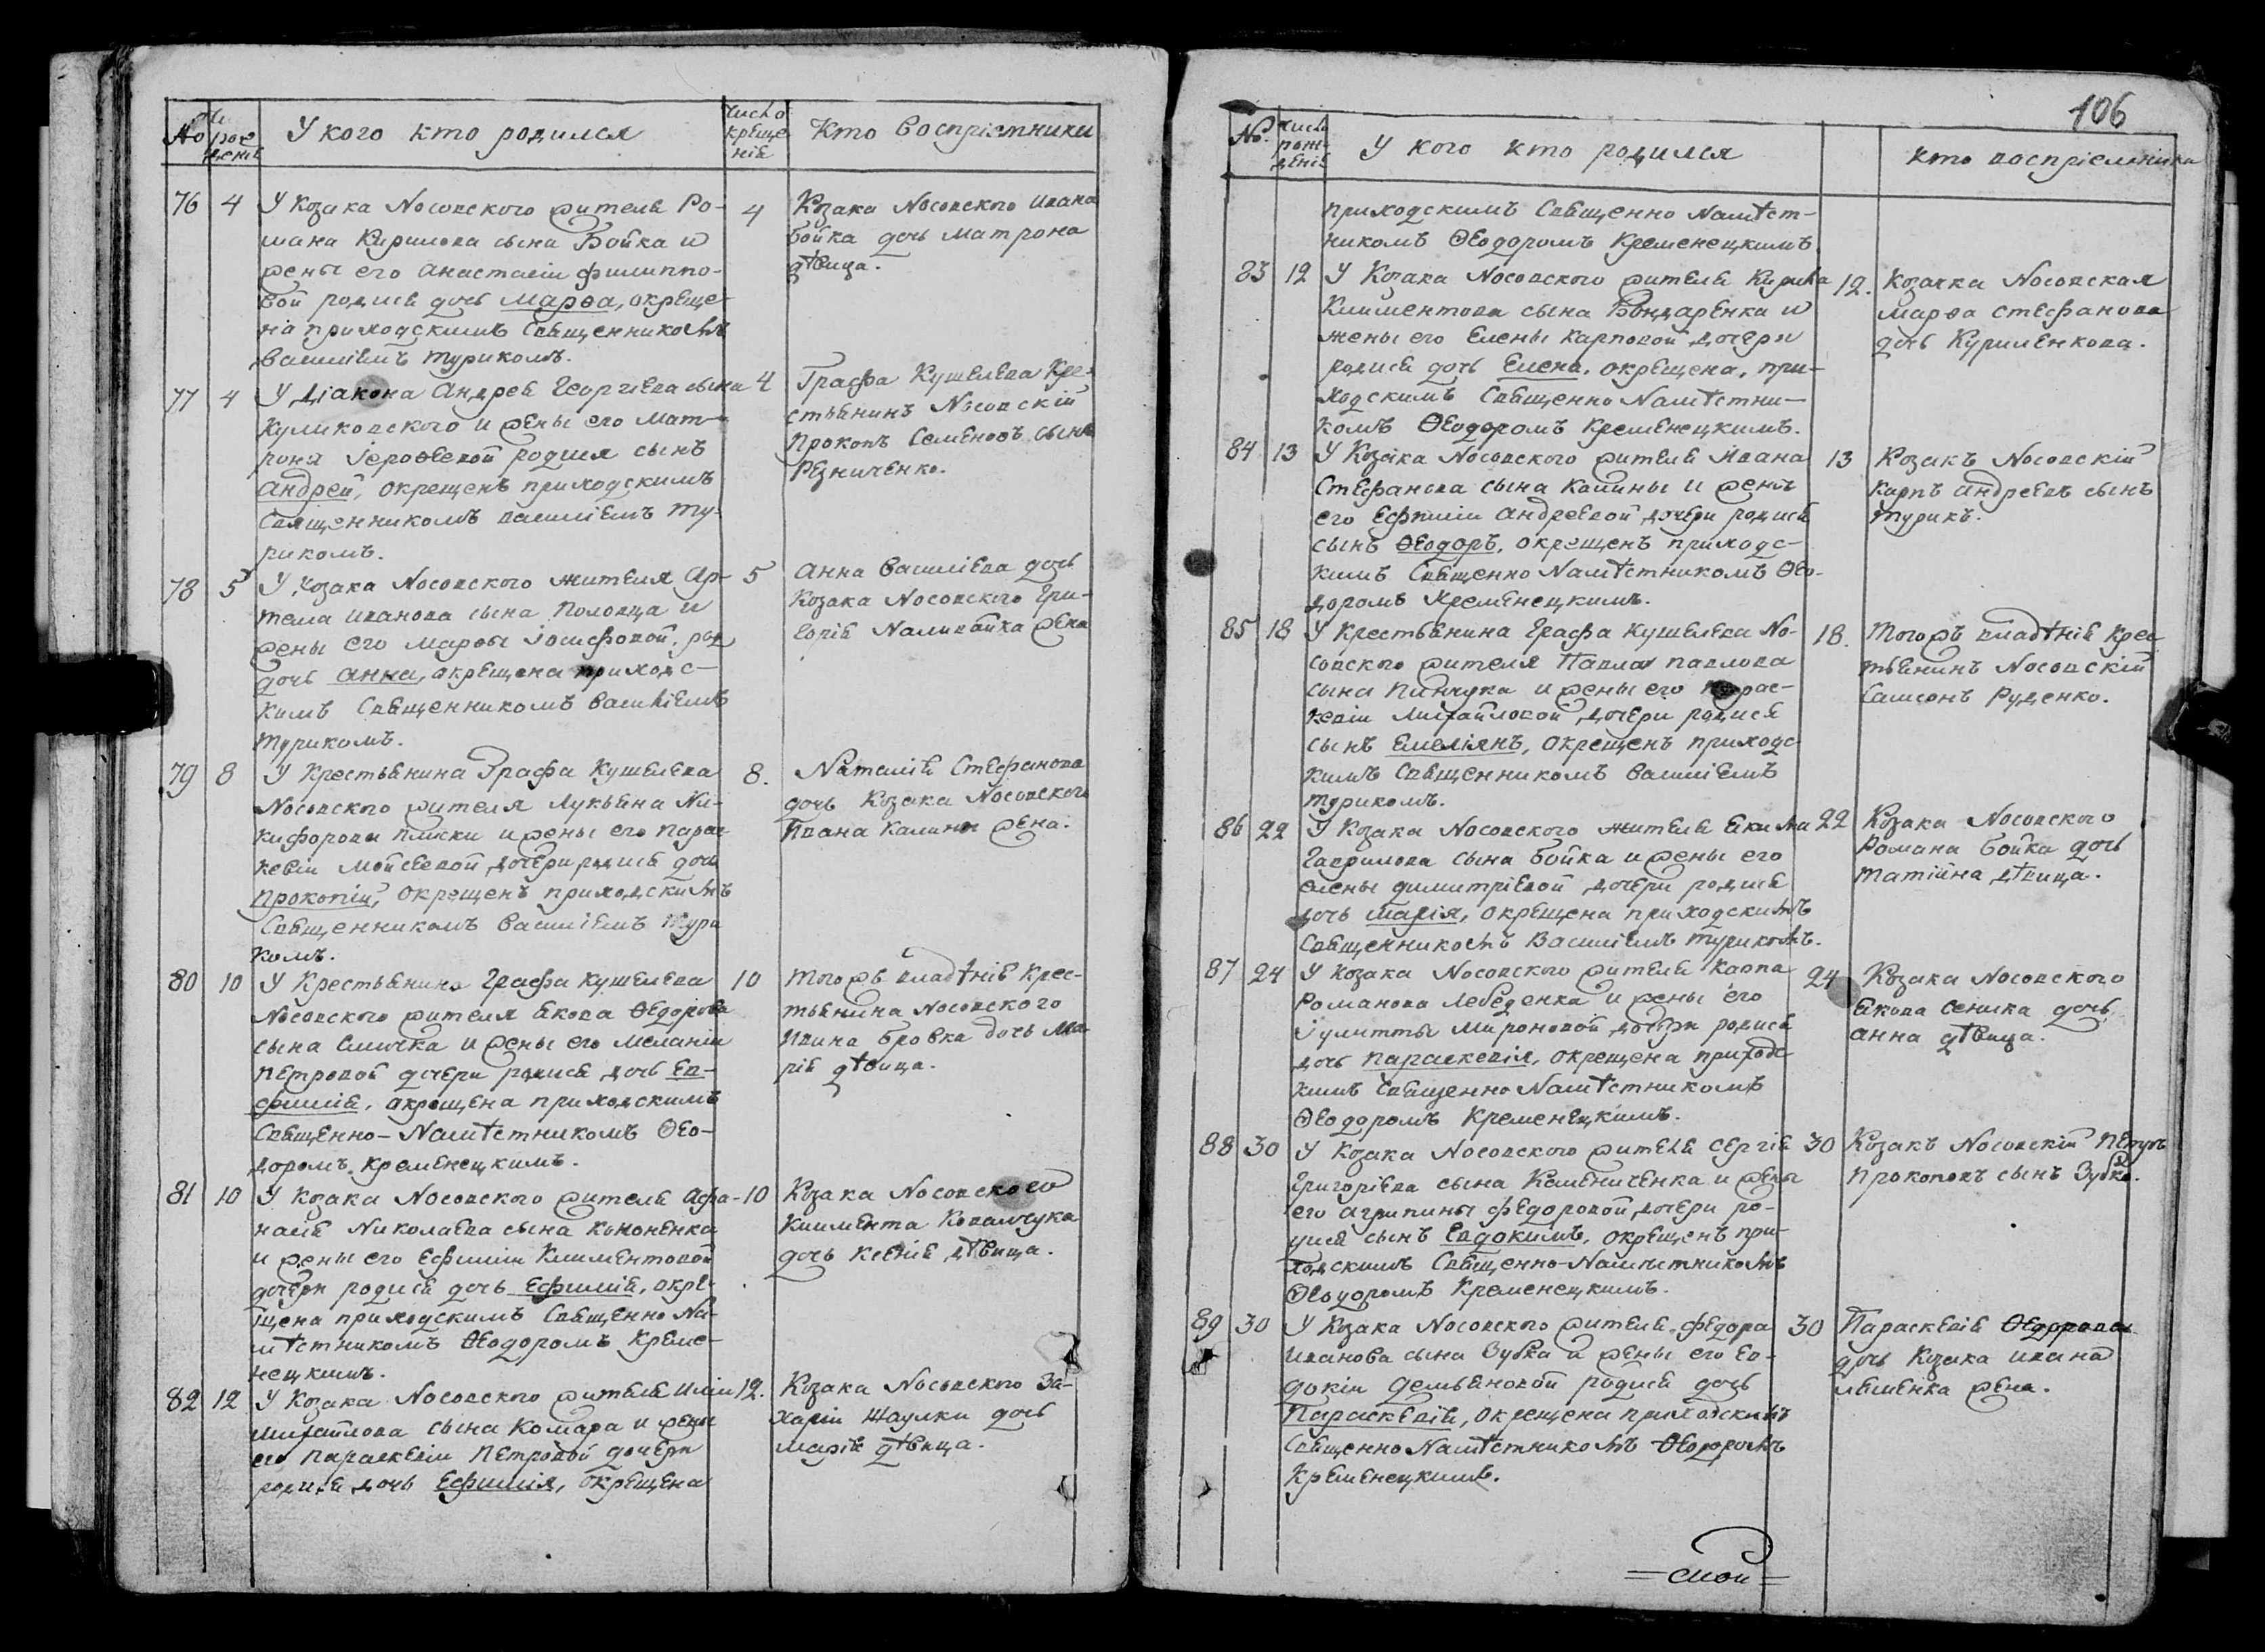 № Чи. рож деніѧ У кого кто родился Число креще нія Кто воспріемники
76 4 У Козака Носовского жителя Ро-
мана Кирилова сына Бойка и
жены его Анастасіи Филиппо-
вой родися дочь Марѳа, окреще-
на приходскимъ Священникомъ
Василіемъ Турикомъ.
4 Козака Носовского Ивана
Бойка дочь Матрона
дѣвица.
77 4 У Діакона Андрея Георгіева сына
Куликовского и жены его Мат-
роны Іероѳеевой родился сынъ
Андрей, окрещенъ приходскимъ
Священникомъ Василіемъ Ту-
рикомъ.
4 Графа Кушелева Кре-
стьянинъ Носовскій
Прокопъ Семеновъ сынъ
Резниченко.
78 5 У Козака Носовского жителя Ар-
тема Иванова сына Половца и
жены его Марѳы Іосифовой, род
дочь Анна, окрещена приходс-
кимъ Священникомъ Василіемъ
Турикомъ.
5 Анна Василіева дочь
Козака Носовского Гри-
горія Наливайка жена
79 8 У Крестьянина Графа Кушелева
Носовского жителя Лукьяна Ни-
кифорова Пляски и жены его Парас
кевіи Мойсеевой дочери родися дочь
Прокопій, окрещенъ приходскимъ
Священникомъ Василіемъ Тури
комъ.
8. Наталія Стефанова
дочь Козака Носовского
Ивана Калины жена.
80 10 У Крестьянина Графа Кушелева
Носовского жителя Якова Ѳедорова
сына Смычка и жены его Меланіи
Петровой дочери родися дочь Ев-
фимія, окрещена приходскимъ
Священно-Намѣстникомъ Ѳео-
доромъ Кременецкимъ.
10 Тогожъ владѣнія Крес-
тьянина Носовского
Ивана Бровка дочь Ма-
рія дѣвица.
81 10 У Козака Носовского жителя Афа-
насія Николаева сына Кононенка
и жены его Ефиміи Климентовой
дочери родися дочь Ефимія, окре-
щена приходскимъ Священно На-
мѣстникомъ Ѳеодоромъ Креме-
нецкимъ.
10 Козака Носовского
Климента Ковалчука
дочь Ксенія дѣвица.
82 12 У Козака Носовского жителя Иліи
Михайлова сына Комара и жены
его Параскевіи Петровой дочери
родися дочь Ефимія, окрещена
12. Козака Носовского За-
харіи Шаулки дочь
Марія дѣвица.
106
№. Число рож- деніѧ У кого кто родился Кто воспріемники
приходскимъ Священно Намѣст-
никомъ Ѳеодоромъ Кременецкимъ.
83 12 У Козака Носовского жителя Кирила
Климентова сына Бондаренка и
жены его Елены Карповой дочери
родися дочь Елена, окрещена, при-
ходскимъ Священно Намѣстни-
комъ Ѳеодоромъ Кременецкимъ.
12. Козачка Носовская
Марѳа Стефанова
дочь Куриленкова.
84 13 У Козака Носовского жителя Ивана
Стефанова сына Калины и жены
его Ефиміи Андреевой дочери родися
сынъ Ѳеодоръ, окрещенъ приходс-
кимъ Священно Намѣстникомъ Ѳео-
доромъ Кременецкимъ.
13 Козакъ Носовскій
Карпъ Андреевъ сынъ
Турикъ.
85 18 У Крестьянина Графа Кушелева Но-
совского жителя Павла Павлова
сына Пинчука и жены его Парас-
кевіи Михайловой дочери родися
сынъ Емеліянъ, окрещенъ приходс
кимъ Священникомъ Василіемъ
Турикомъ.
18. Тогожъ владѣнія Крес
тьянинъ Носовскій
Самсонъ Руденко.
86 22 У Козака Носовского жителя Екима
Гаврилова сына Бойка и жены его
Елены Димитріевой дочери родися
дочь Марія, окрещена приходскимъ
Священникомъ Василіемъ Турикомъ.
22 Козака Носовского
Романа Бойка дочь
Татіяна дѣвица.
87 24 У Козака Носовского жителя Карпа
Романова Лебеденка и жены его
Іулитты Мироновой дочери родися
дочь Параскевія, окрещена приходс
кимъ Священно Намѣстникомъ
Ѳеодоромъ Кременецкимъ.
24 Козака Носовского
Якова Сеника дочь
Анна дѣвица.
88 30 У Козака Носовского жителя Сергія
Григоріева сына Камениченка и жены
его Агрипины Федоровой дочери ро-
дися сынъ Евдокимъ, окрещенъ при-
ходскимъ Священно-Намѣстникомъ
Ѳеодоромъ Кременецкимъ.
30 Козакъ Носовскій Петръ
Прокоповъ сынъ Зубко.
89 30 У Козака Носовского жителя Федора
Иванова сына Зубка и жены его Ев-
докіи Демьяновой родися дочь
Параскевія, окрещена приходскимъ
Священно Намѣстникомъ Ѳеодоромъ
Кременецкимъ.
30 Параскевія Ѳедорова
дочь Козака Ивана
Лешенка жена.